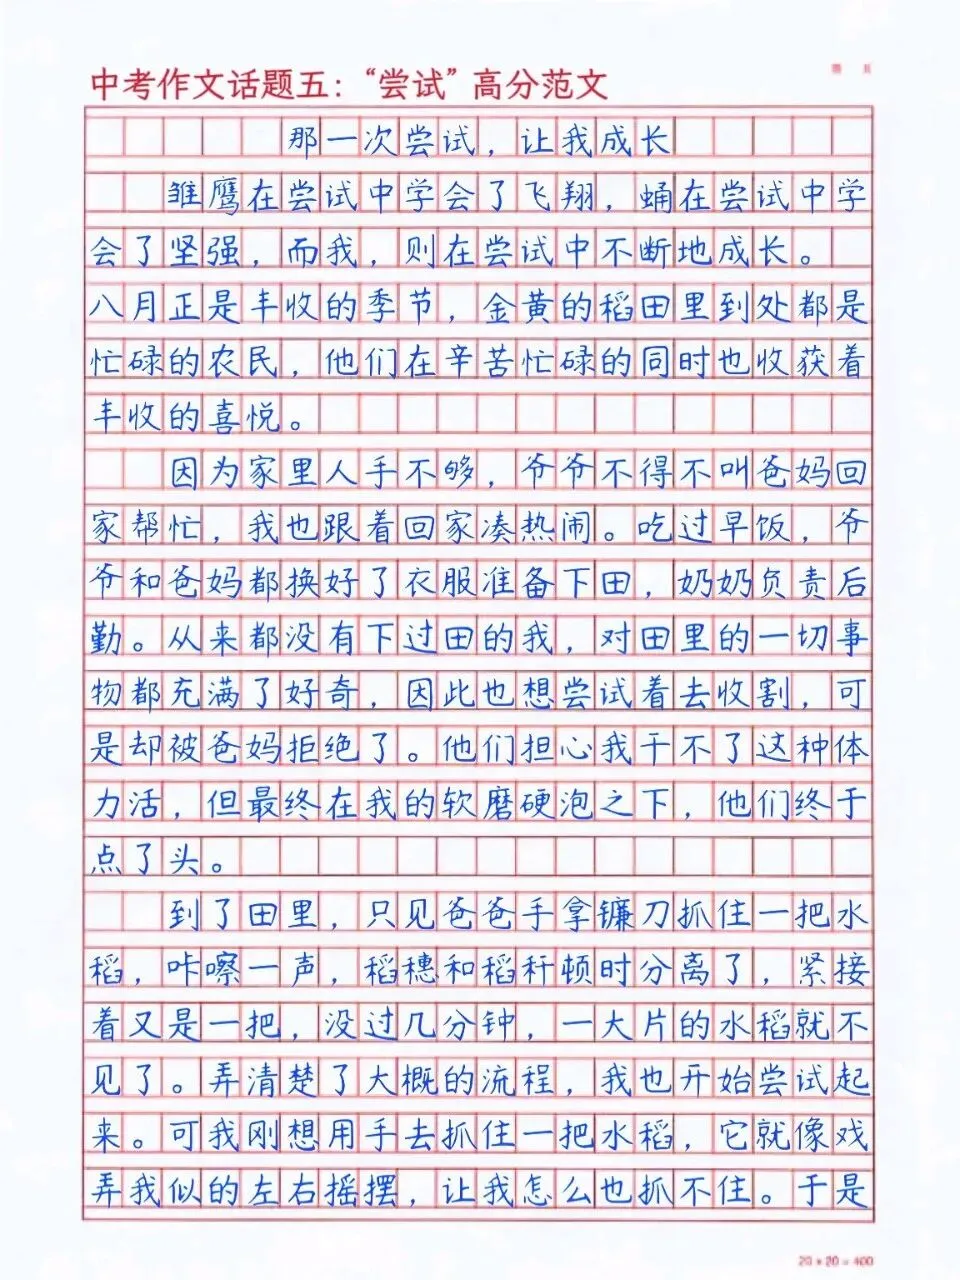 中考作文话题五：“尝试”高分范文
那一次尝试，让我成长
雏鹰在尝试中学会了飞翔，蛹在尝试中学
会了坚强，而我，则在尝试中不断地成长。
八月正是丰收的季节，金黄的稻田里到处都是
忙碌的农民，他们在辛苦忙碌的同时也收获着
丰收的喜悦。
因为家里人手不够，爷爷不得不叫爸妈回
家帮忙，我也跟着回家凑热闹。吃过早饭，爷
爷和爸妈都换好了衣服准备下田，奶奶负责后
勤。从来都没有下过田的我，对田里的一切事
物都充满了好奇，因此也想尝试着去收割，可
是却被爸妈拒绝了。他们担心我干不了这种体
力活，但最终在我的软磨硬泡之下，他们终于
点了头。
到了田里，只见爸爸手拿镰刀抓住一把水
稻，咔嚓一声，稻穗和稻秆顿时分离了，紧接
着又是一把，没过几分钟，一大片的水稻就不
见了。弄清楚了大概的流程，我也开始尝试起
来。可我刚想用手去抓住一把水稻，它就像戏
弄我似的左右摇摆，让我怎么也抓不住。于是
20×20=400